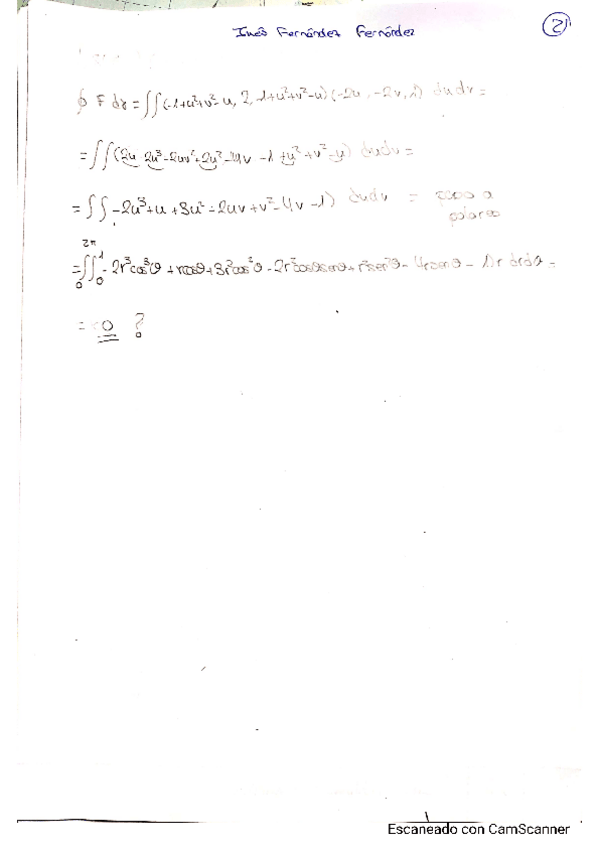 Inés Fernández Fernández
2
∮ F dr = ∬(-1+u²+v²-u, 2, 1+u²+v²-u)(-2u, -2v, 1) dudv =
= ∬(2u - 2u³ - 2uv² + 2u² - 4v - 1 + u² + v² - u) dudv =
= ∬ -2u³ + u + 3u² - 2uv + v² - 4v - 1) dudv = paso a
polares
2π 1
= ∫∫ -2r³cos³θ + rcosθ + 3r²cos²θ - 2r²cosθsenθ + r²sen²θ - 4rsenθ - 1) r drdθ =
0 0
= 0 ?
Escaneado con CamScanner